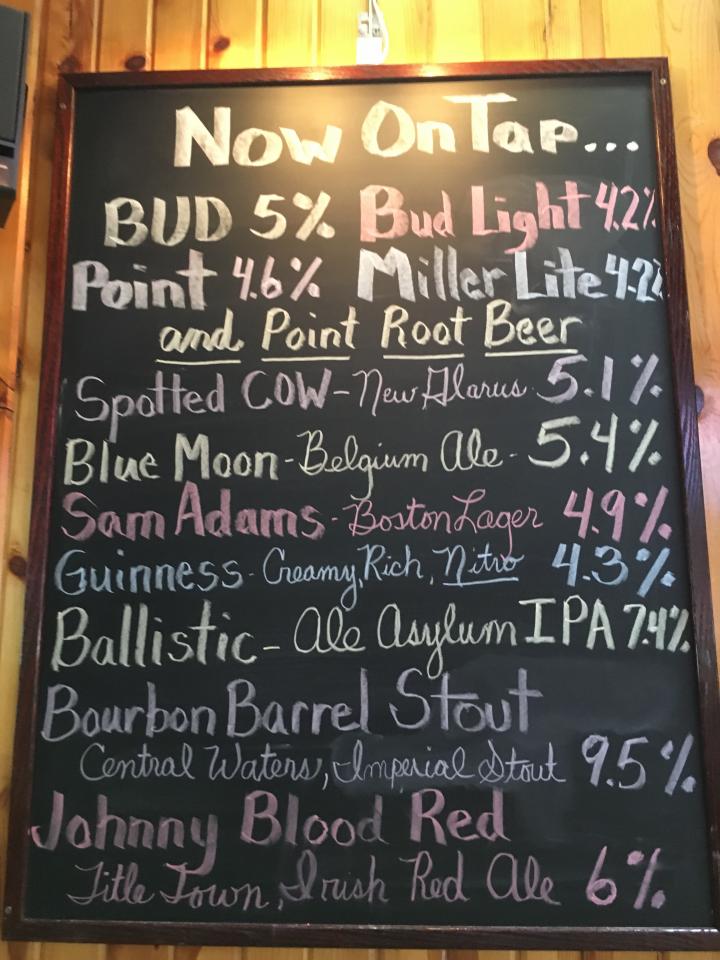 Now On Tap...
BUD 5% Bud Light 4.2%
Point 4.6% Miller Lite 4.2%
and Point Root Beer
Spotted COW - New Glarus 5.1%
Blue Moon - Belgium Ale - 5.4%
Sam Adams - Boston Lager 4.9%
Guinness - Creamy, Rich, Nitro 4.3%
Ballistic - Ale Asylum IPA 7.4%
Bourbon Barrel Stout
Central Waters, Imperial Stout 9.5%
Johnny Blood Red
Title Town, Irish Red Ale 6%